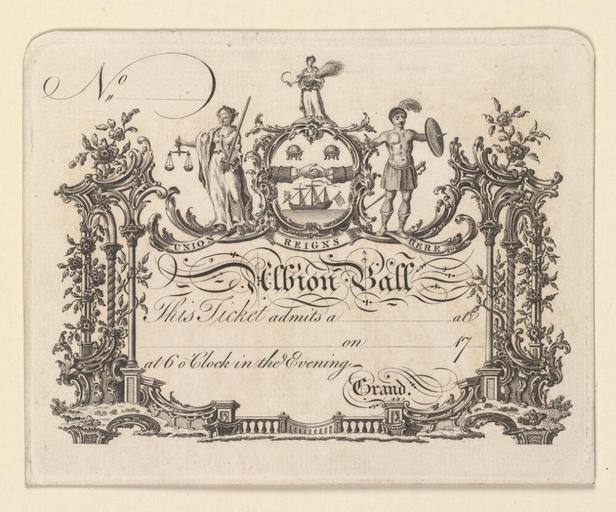 No
UNION REIGNS HERE
Albion Ball
This Ticket admits a at
on 17
at 6 o'Clock in the Evening
Grand.